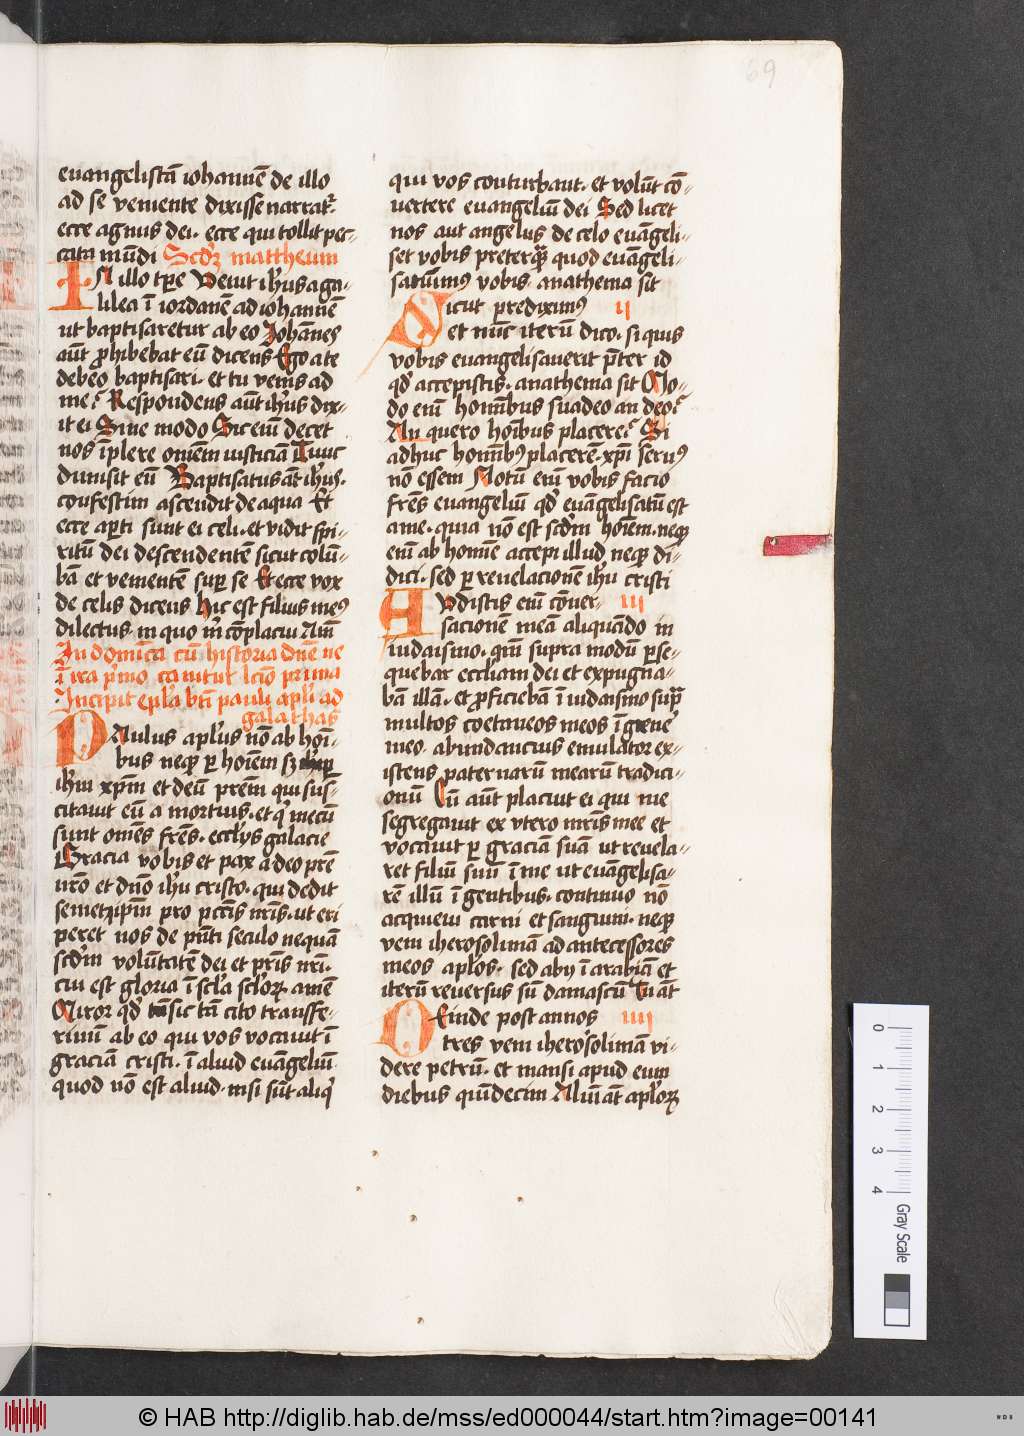 69
euangelistā iohannē de illo
ad se veniente dixisse narrat᷑.
ecce agnus dei. ecce qui tollit pec-
cata mūdi Scdꝫ mattheum
IN illo tꝑe Venit ihūs a ga-
lilea ī iordanē ad iohannē
ut baptisaretur ab eo Johānes
aūt ꝓhibebat eū dicens Ego a te
debeo baptisari. et tu venis ad
me? Respondens aūt ihūs dix-
it ei Sine modo Sic enī decet
nos īplere omēm iusticiā Tunc
dimisit eū Baptisatus āt ihūs.
confestim ascendit de aqua Et
ecce aꝑti sunt ei celi. et vidit spi-
ritū dei descendentē sicut colū-
bā et venientē suꝑ se Et ecce vox
de celis dicens hic est filius meꝰ
dilectus. in quo m̄ cōplacui Am̄
In domīca cū historia dn̄e ne
ī ira p̄mo cantur᷑ lcīo prima
Incipit epl̄a bt̄i pauli apl̄i ad
galathas
PAulus apl̄us nō ab hoī-
bus neqꝫ ꝑ hoiēm sꝫ ꝑ
ihm̄ xp̄m et deū prēm qui sus-
citauit eū a mortuis. et qͥ mecū
sunt omēs frēs. eccl̄ijs galacie
Gracia vobis et pax a deo prē
nr̄o et dn̄o ihū cristo. qui dedit
semetip̄m pro pccīs nr̄is. ut eri
peret nos de pn̄ti seculo nequā
scdm̄ volūtatē dei et pr̄is nr̄i.
cui est gloria ī scl̄a scl̄oꝝ. amē
Miror qd̄ sic tā cito transfe-
rimī ab eo qui vos vocauit ī
graciā cristi. ī aliud euāgeliū.
quod nō est aliud. nisi sūt aliqͥ
qui vos conturbant. et volūt cō-
uertere euangeliū dei Sed licet
nos aut angelus de celo euāgeli-
set vobis preterqͣꝫ quod euāgeli-
sauimꝰ vobis. anathema sit
Sicut prediximꝰ ii
et nūc iterū dico. si quis
vobis euangelisauerit p̄ter id
qd̄ accepistis. anathema sit Mo-
do enī homībus suadeo an deo?
An quero hoībus placere? Si
adhuc homībꝰ placerē. xp̄i seruꝰ
nō essem Notū enī vobis facio
frēs euangeliū qd̄ euāgelisatū est
a me. quia nō est scdm̄ hoīem. neqꝫ
enī ab homīe accepi illud neqꝫ di-
dici. sed ꝑ reuelacionē ihū cristi
AUdistis enī cōuer- iii
sacionē meā aliquādo in
iudaismo. qm̄ supra modū ꝑse-
quebar eccl̄iam dei et expugna-
bā illā. et ꝓficiebā ī iudaismo supͣ
multos coetaneos meos ī genere
meo. abundancius emulator ex-
istens paternarū mearū tradici-
onū Cū aūt placuit ei qui me
segregauit ex vtero mr̄is mee et
vocauit ꝑ graciā suā ut reuela-
ret filiū suū ī me ut euāgelisa-
rē illū ī gentibus. continuo nō
acquieui carni et sanguini. neqꝫ
veni iherosolimā ad antecessores
meos apl̄os. sed abij ī arabiā et
iterū reuersus sū damascū Tu āt
DEinde post annos iiii
tres veni iherosolimā vi-
dere petrū. et mansi apud eum
diebus quīdecim Aliū āt apl̄oꝝ
0 1 2 3 4 Gray Scale
© HAB http://diglib.hab.de/mss/ed000044/start.htm?image=00141